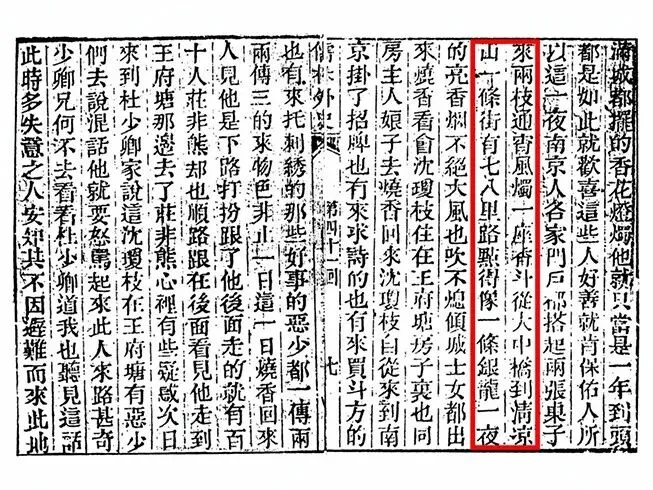 滿城都擺的香花燈燭他就只當是一年到頭
都是如此就歡喜這些人好善就肯保佑人所
以這一夜南京人各家門戶都搭起兩張桌子
來兩枝通宵風燭一座香斗從大中橋到清涼
山一條街有七八里路點得像一條銀龍一夜
的亮香烟不絕大風也吹不熄傾城士女都出
來燒香看會沈瓊枝住在王府塘房子裏也同
房主人娘子去燒香回來沈瓊枝自從來到南
京掛了招牌也有來求詩的也有來買斗方的
儒林外史 第四十一回 七
也有來托刺繡的那些好事的惡少都一傳兩
兩傳三的來物色非止一日這一日燒香回來
人見他是下路打扮跟了他後面走的就有百
十人莊非熊却也順路跟在後面看見他走到
王府塘那邊去了莊非熊心裡有些疑惑次日
來到杜少卿家說這沈瓊枝在王府塘有惡少
們去說混話他就要怒罵起來此人來路甚奇
少卿兄何不去看看杜少卿道我也聽見這話
此時多失意之人安知其不因避難而來此地